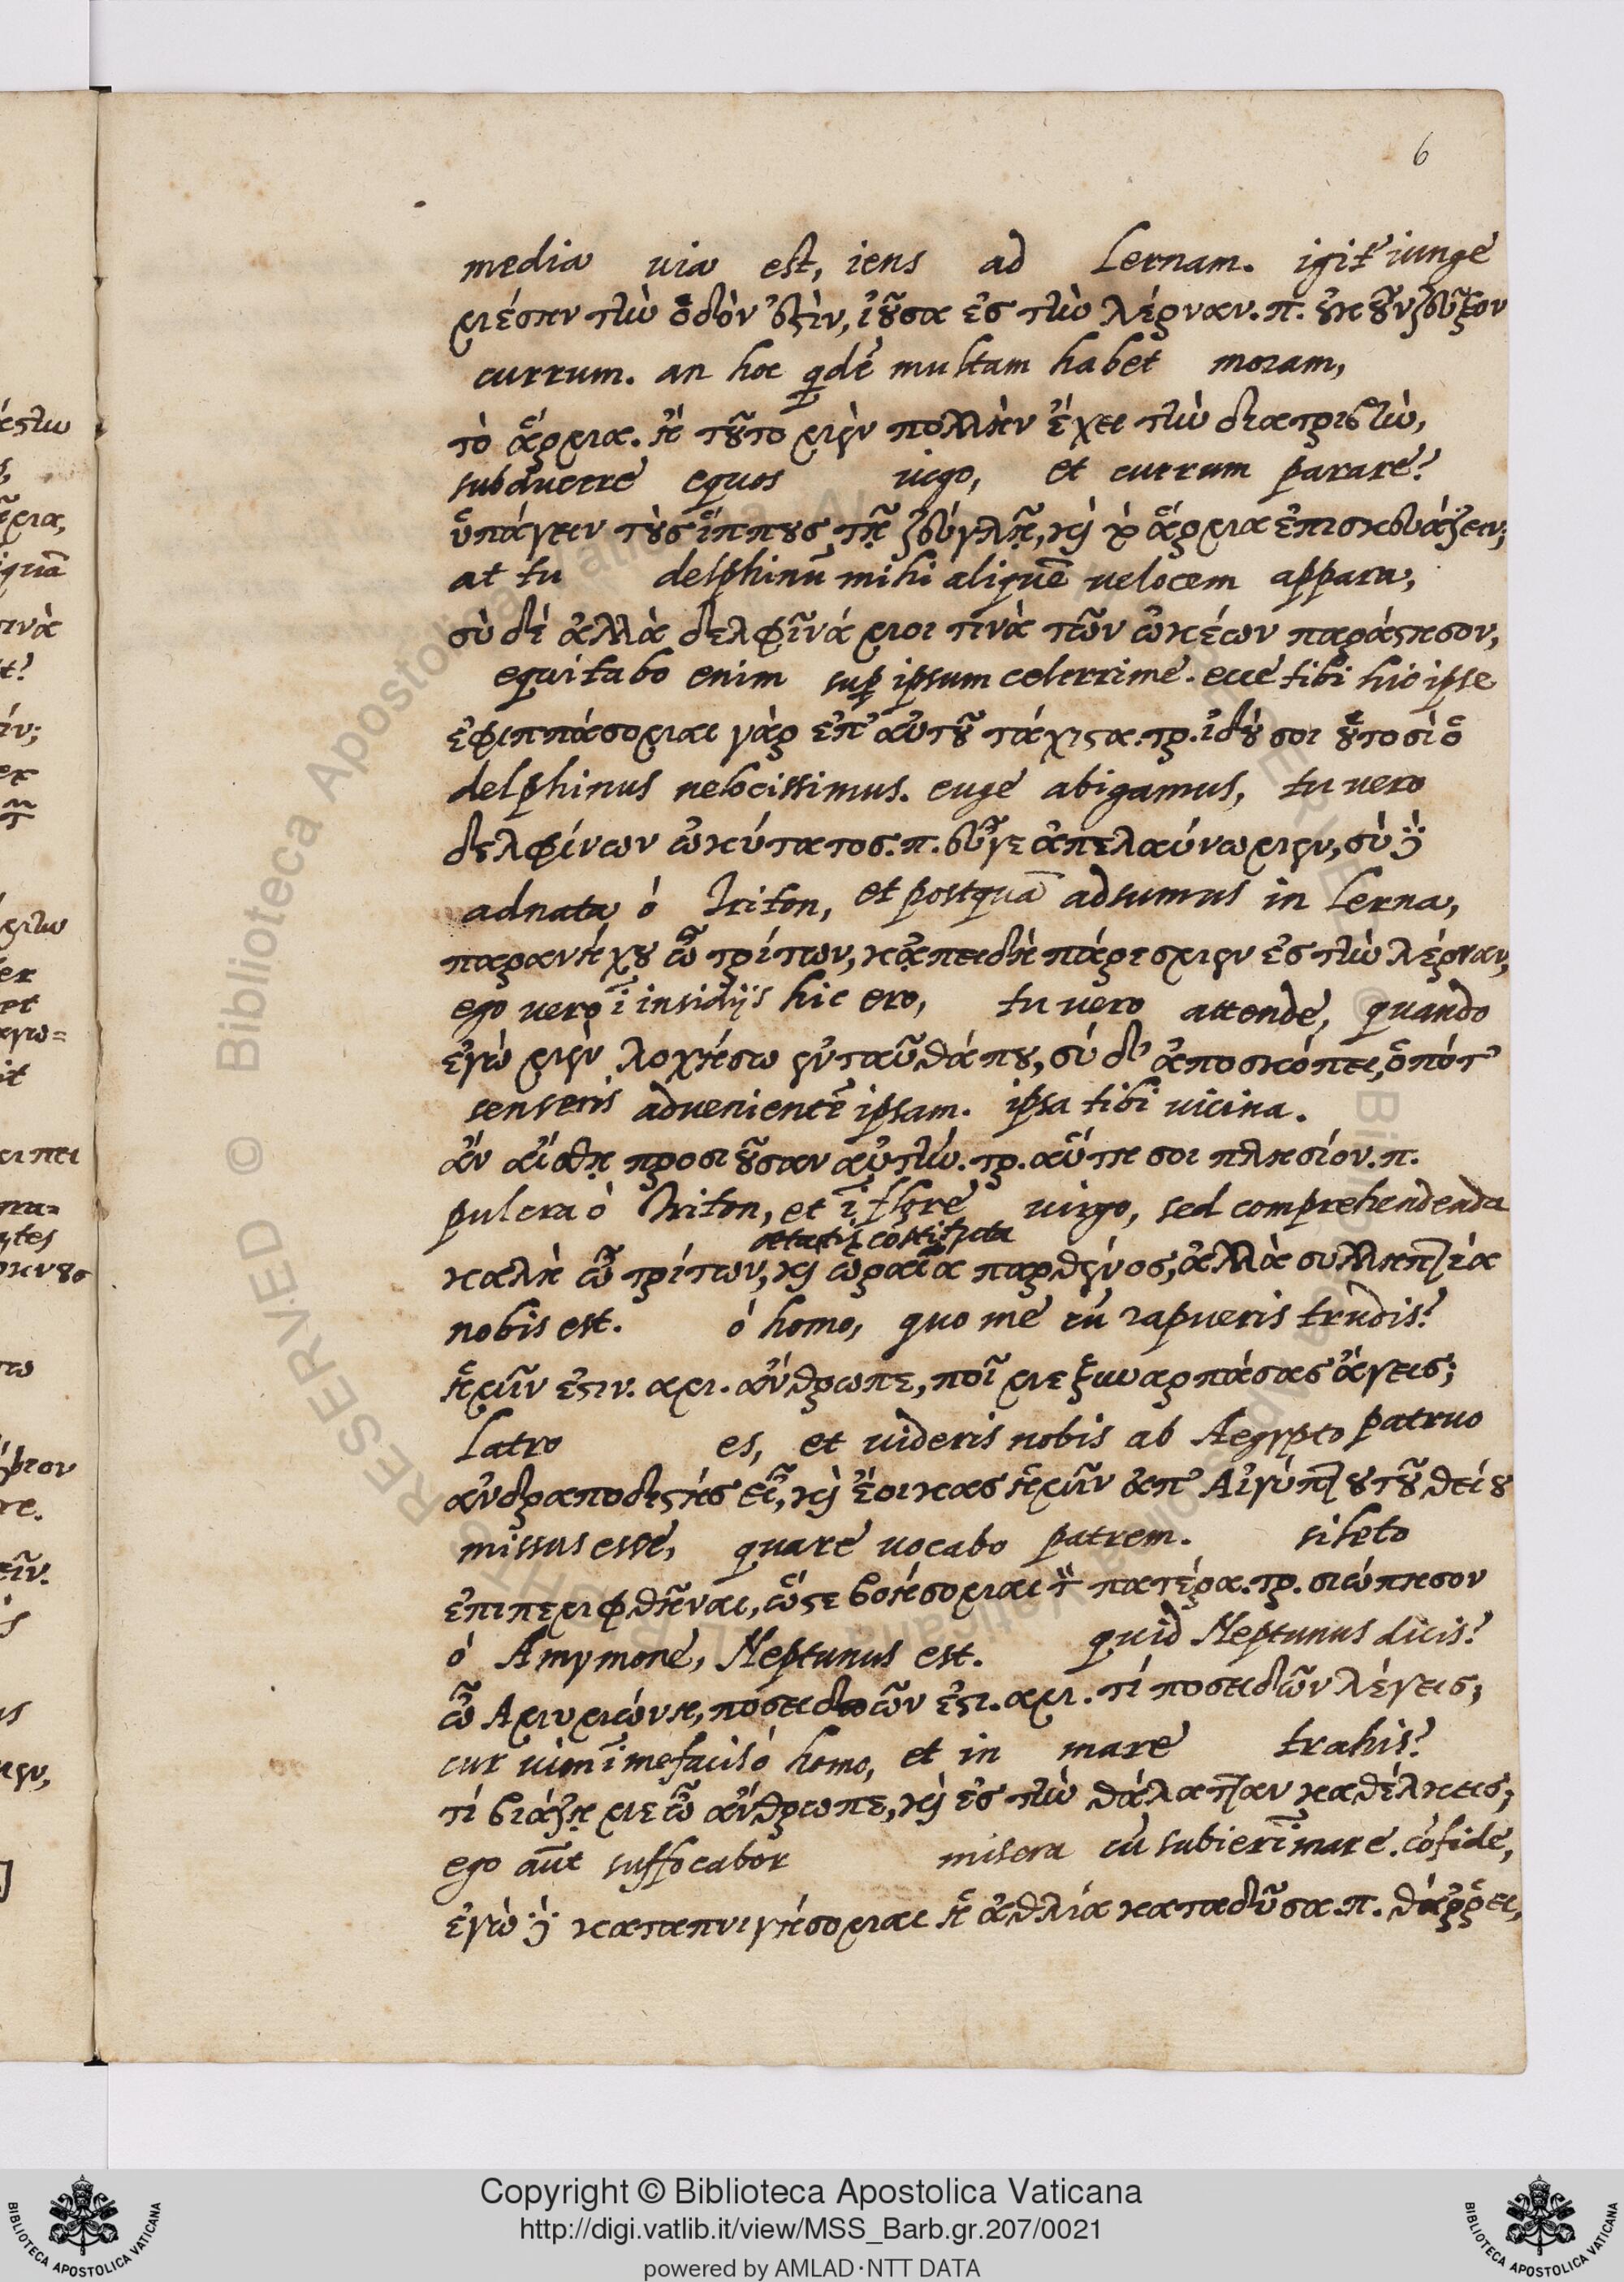 6
media via est, iens ad Lernam. igit̃ iunge
μέσην τὴν ὁδὸν ἐστὶν, ἰοῦσα ἐς τὴν λέρναν. π. οὐκ οὖν ζεῦξον
currum. an hoc qdẽ multam habet moram,
τὸ ἅρμα. ἢ τοῦτο μὲν πολλὴν ἔχει τὴν διατριβὴν,
subducere equos iugo, et currum parare?
ὑπάγειν τοὺς ἵππους τῇ ζεύγλῃ, καὶ τὸ ἅρμα ἐπισκευάζειν;
at tu delphinũ mihi aliquẽ velocem appara,
σὺ δὲ ἀλλὰ δελφῖνά μοι τινὰ τῶν ὠκέων παράστησον,
equitabo enim sup ipsum celerrime. ecce tibi hic ipse
ἐφιππάσομαι γὰρ ἐπ' αὐτοῦ τάχιστα. τρ. ἰδού σοι οὑτοσὶ ὁ
delphinus velocissimus. euge abigamus, tu vero
δελφίνων ὠκύτατος. π. εὖγε ἀπελαύνωμεν, σὺ δὲ
adnata ó Triton, et postquã adsumus in Lerna,
παρανήχου ὦ τρίτων, κᾀπειδὴ πάρεσμεν ἐς τὴν λέρναν,
ego vero ĩ insidijs hic ero, tu vero attende, quando
ἐγὼ μὲν λοχήσω ἐνταῦθά που, σύ δ' ἀποσκόπει, ὁπότ'
senseris advenientẽ ipsam. ipsa tibi vicina.
ἂν αἴσθῃ προσιοῦσαν αὐτήν. τρ. αὕτη σοι πλησίον. π.
pulcra ó Triton, et ĩ flore virgo, sed comprehendenda
aetatis cõstituta
καλὴ ὦ τρίτων, καὶ ὡραῖα παρθένος, ἀλλὰ συλληπτέα
nobis est. ó homo, quo me cũ rapueris trudis?
ἡμῖν ἐστιν. αμ. ἄνθρωπε, ποῖ με ξυναρπάσας ἄγεις;
Latro es, et videris nobis ab Aegypto patruo
ἀνδραποδιστής εἶ, καὶ ἔοικας ἡμῖν ἀπ' Αἰγύπτου τοῦ θείου
missus esse, quare vocabo patrem. sileto
ἐπιπεμφθῆναι, ὥστε βοήσομαι τὸν πατέρα. τρ. σιώπησον
ó Amymone, Neptunus est. quid Neptunus dicis?
ὦ Αμυμώνη, ποσειδῶν ἐστι. αμ. τί ποσειδῶν λέγεις;
cur vim ĩ me facis ó homo, et in mare trahis?
τί βιάζῃ με ὦ ἄνθρωπε, καὶ ἐς τὴν θάλατταν καθέλκεις;
ego aũt suffocabor misera cũ subierĩ mare. cõfide,
ἐγὼ δὲ καταπνιγήσομαι ἡ ἀθλία καταδῦσα. π. θάῤῥει,
Copyright © Biblioteca Apostolica Vaticana
http://digi.vatlib.it/view/MSS_Barb.gr.207/0021
powered by AMLAD·NTT DATA